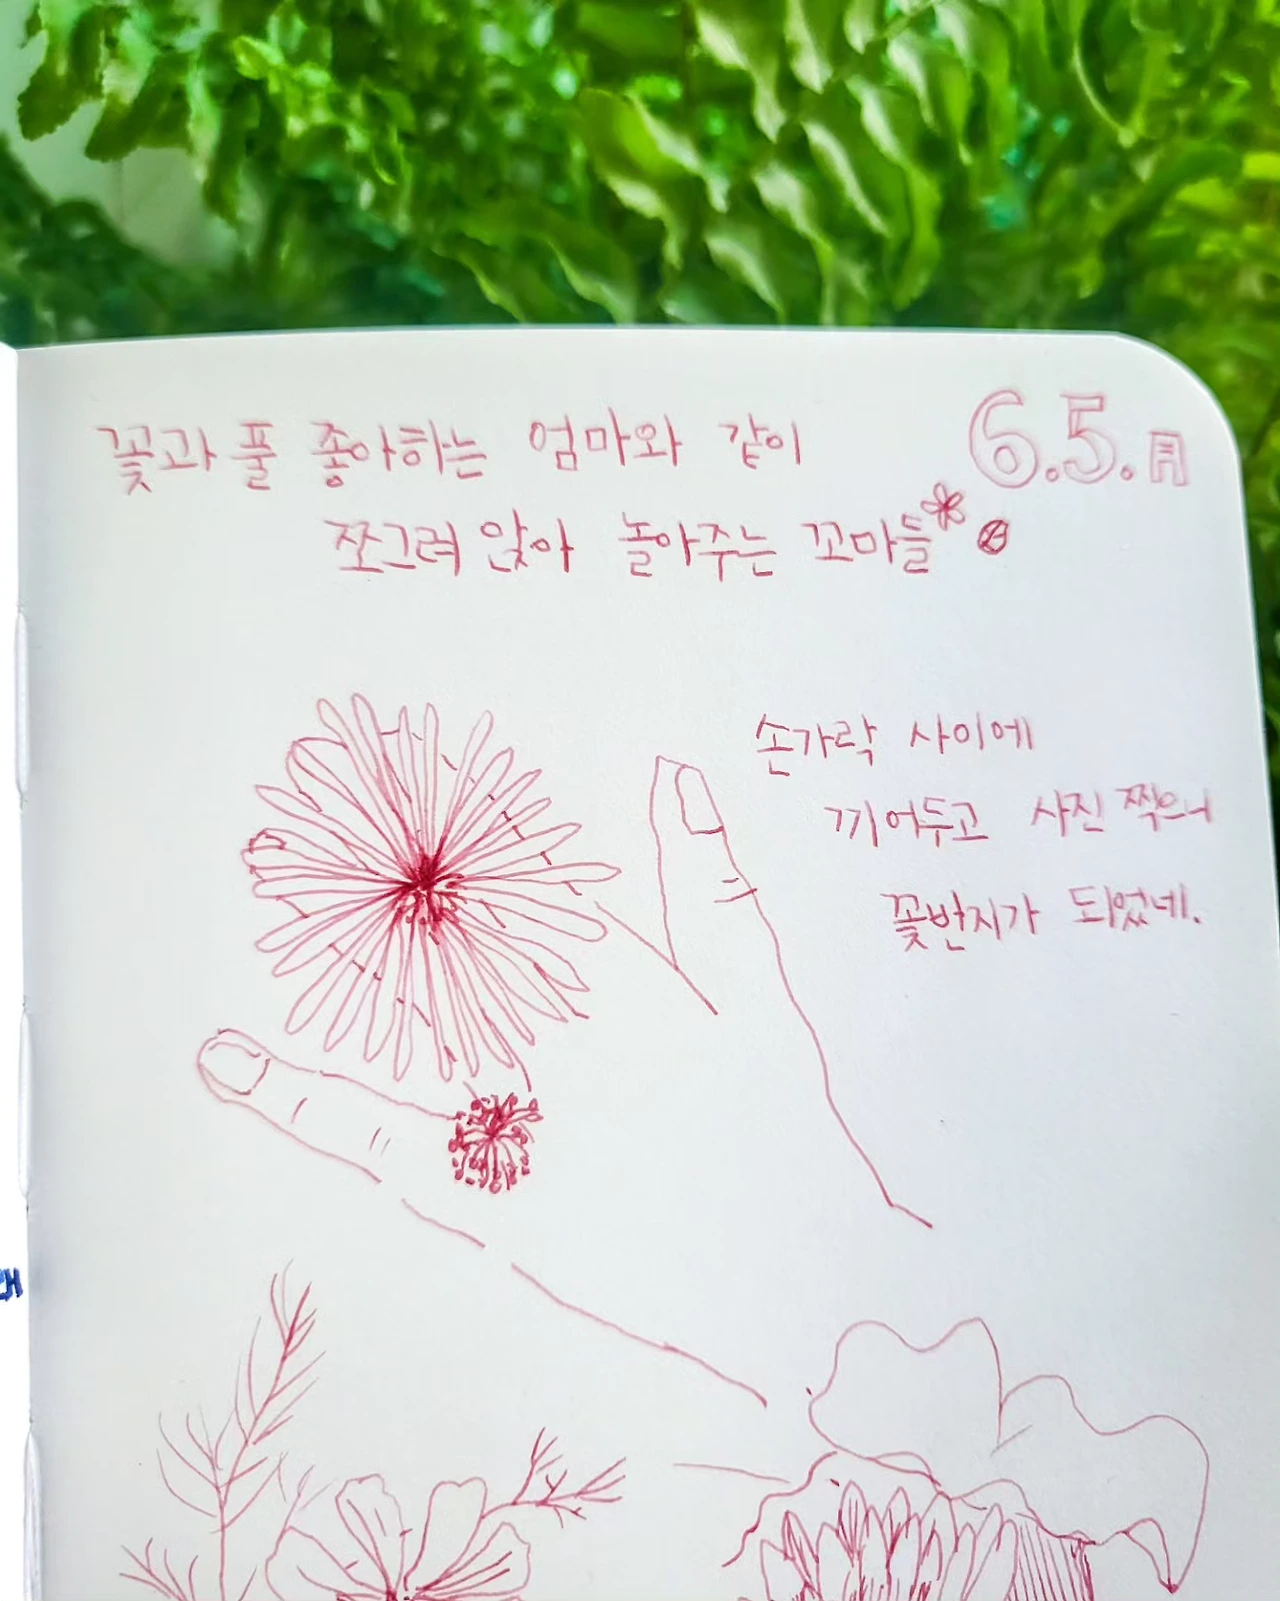 꽃과 풀 좋아하는 엄마와 같이
6.5.月
쪼그려 앉아 놀아주는 꼬마들
손가락 사이에
끼어두고 사진 찍으니
꽃반지가 되었네.